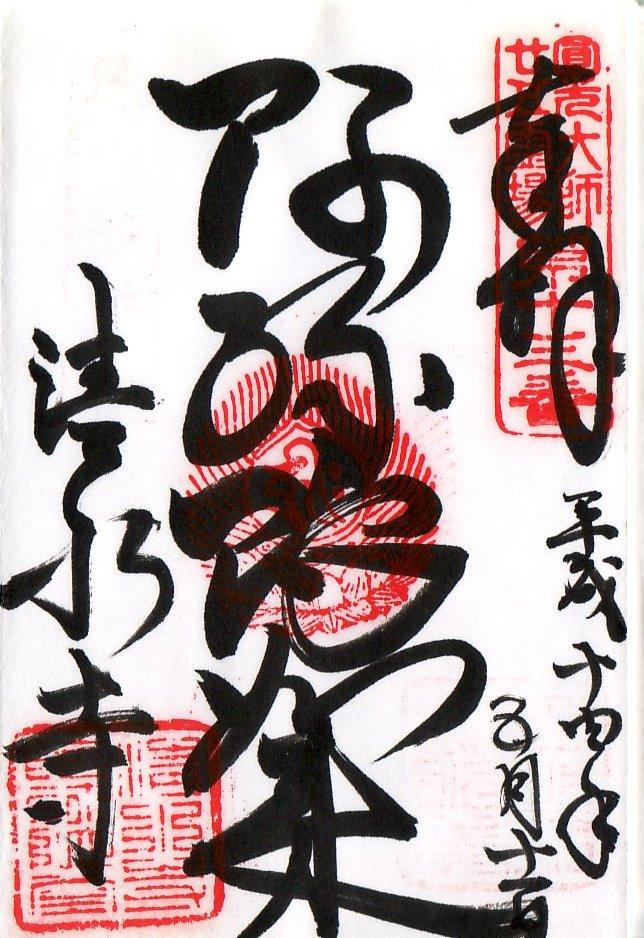 奉拝
圓光大師
廿五霊場
第十三番
平成十四年
五月十
阿弥陀如来
清水寺